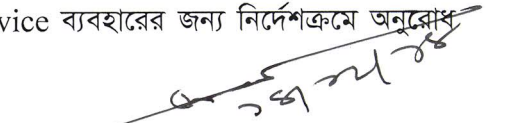 vice ব্যবহারের জন্য নির্দেশক্রমে অনুরোধ